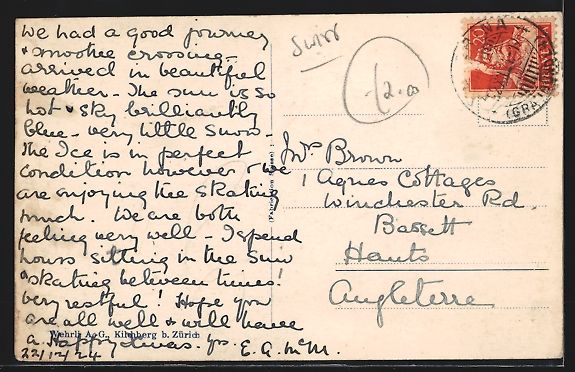 We had a good journey
& smoothe crossing -
arrived in beautiful
weather - The sun is so
hot & sky brilliantly
blue - very little snow -
The Ice is in perfect
condition however & we
are enjoying the skating
much. We are both
feeling very well - I spend
hours sitting in the sun
skating between times!
Very restful! Hope you
are all well & will have
a Happy Xmas. yrs. E. A. McM.
22/12/24
Wehrli A.-G., Kilchberg b. Zürich
Swiss
2.00
20
(GRA
Mrs Brown
1 Agnes Cottages
Winchester Rd.
Bassett
Hants
Angleterre